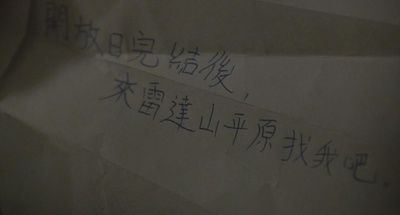 開放日完結後,
來雷達山平原找我吧.